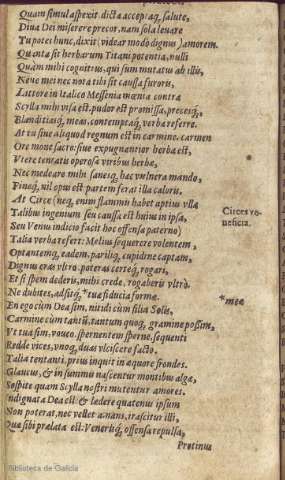 Quam simul aspexit. dicta acceptaq; salute,
Diua Dei miserere precor, nam sola leuare
Tu potes hunc, dixit (videar modo dignus) amorem.
Quanta sit herbarum Titani potentia, nulli
Quàm mihi cognitius, qui sum mutatus ab illis,
Neue mei nec nota tibi sit caussa furoris,
Littore in Italico Messenia mœnia contra
Scylla mihi visa est. pudor est promissa, precesq́;,
Blanditiasq́; meas, contemptaq́; verba referre.
At tu siue aliquod regnum est in carmine, carmen
Ore moue sacro: siue expugnantior herba est,
Vtere tentatis operosa viribus herbæ,
Nec medeare mihi sanesq́; hæc vulnera mando,
Fineq́; nil opus est partem ferat illa caloris,
At Circe (neq; enim flammis habet aptius vlla
Talibus ingenium seu caussa est huius in ipsa,
Seu Venus indicio facit hoc offensa paterno)
Talia verba refert: Melius sequerere volentem,
Optantemq́; eadem, pariliq́; cupidine captam,
Dignus eras vltro. poteras certeq́; rogari,
Et si spem dederis, mihi crede, rogaberis vltrò.
Ne dubites, adsitq́; *tuæ fiducia formæ.
En ego cùm Dea sim, nitidi cùm filia Solis,
Carmine cùm tantũ, tantum quoq́; gramine possim,
Vt tua sim, voueo. spernentem sperne, sequenti
Redde vices, vnoq́; duas vlciscere facto.
Talia tentanti, prius inquit in æquore frondes.
Glaucus, & in summis nascentur montibus algæ,
Sospite quam Scylla nostri mutentur amores.
Indignata Dea est: & lædere quatenus ipsum
Non poterat, nec vellet amans, irascitur illi,
Quæ sibi prælata est: Venerisq́; offensa repulsa,
Protinus
Circes ve-
neficia.
*meæ
Biblioteca de Galicia